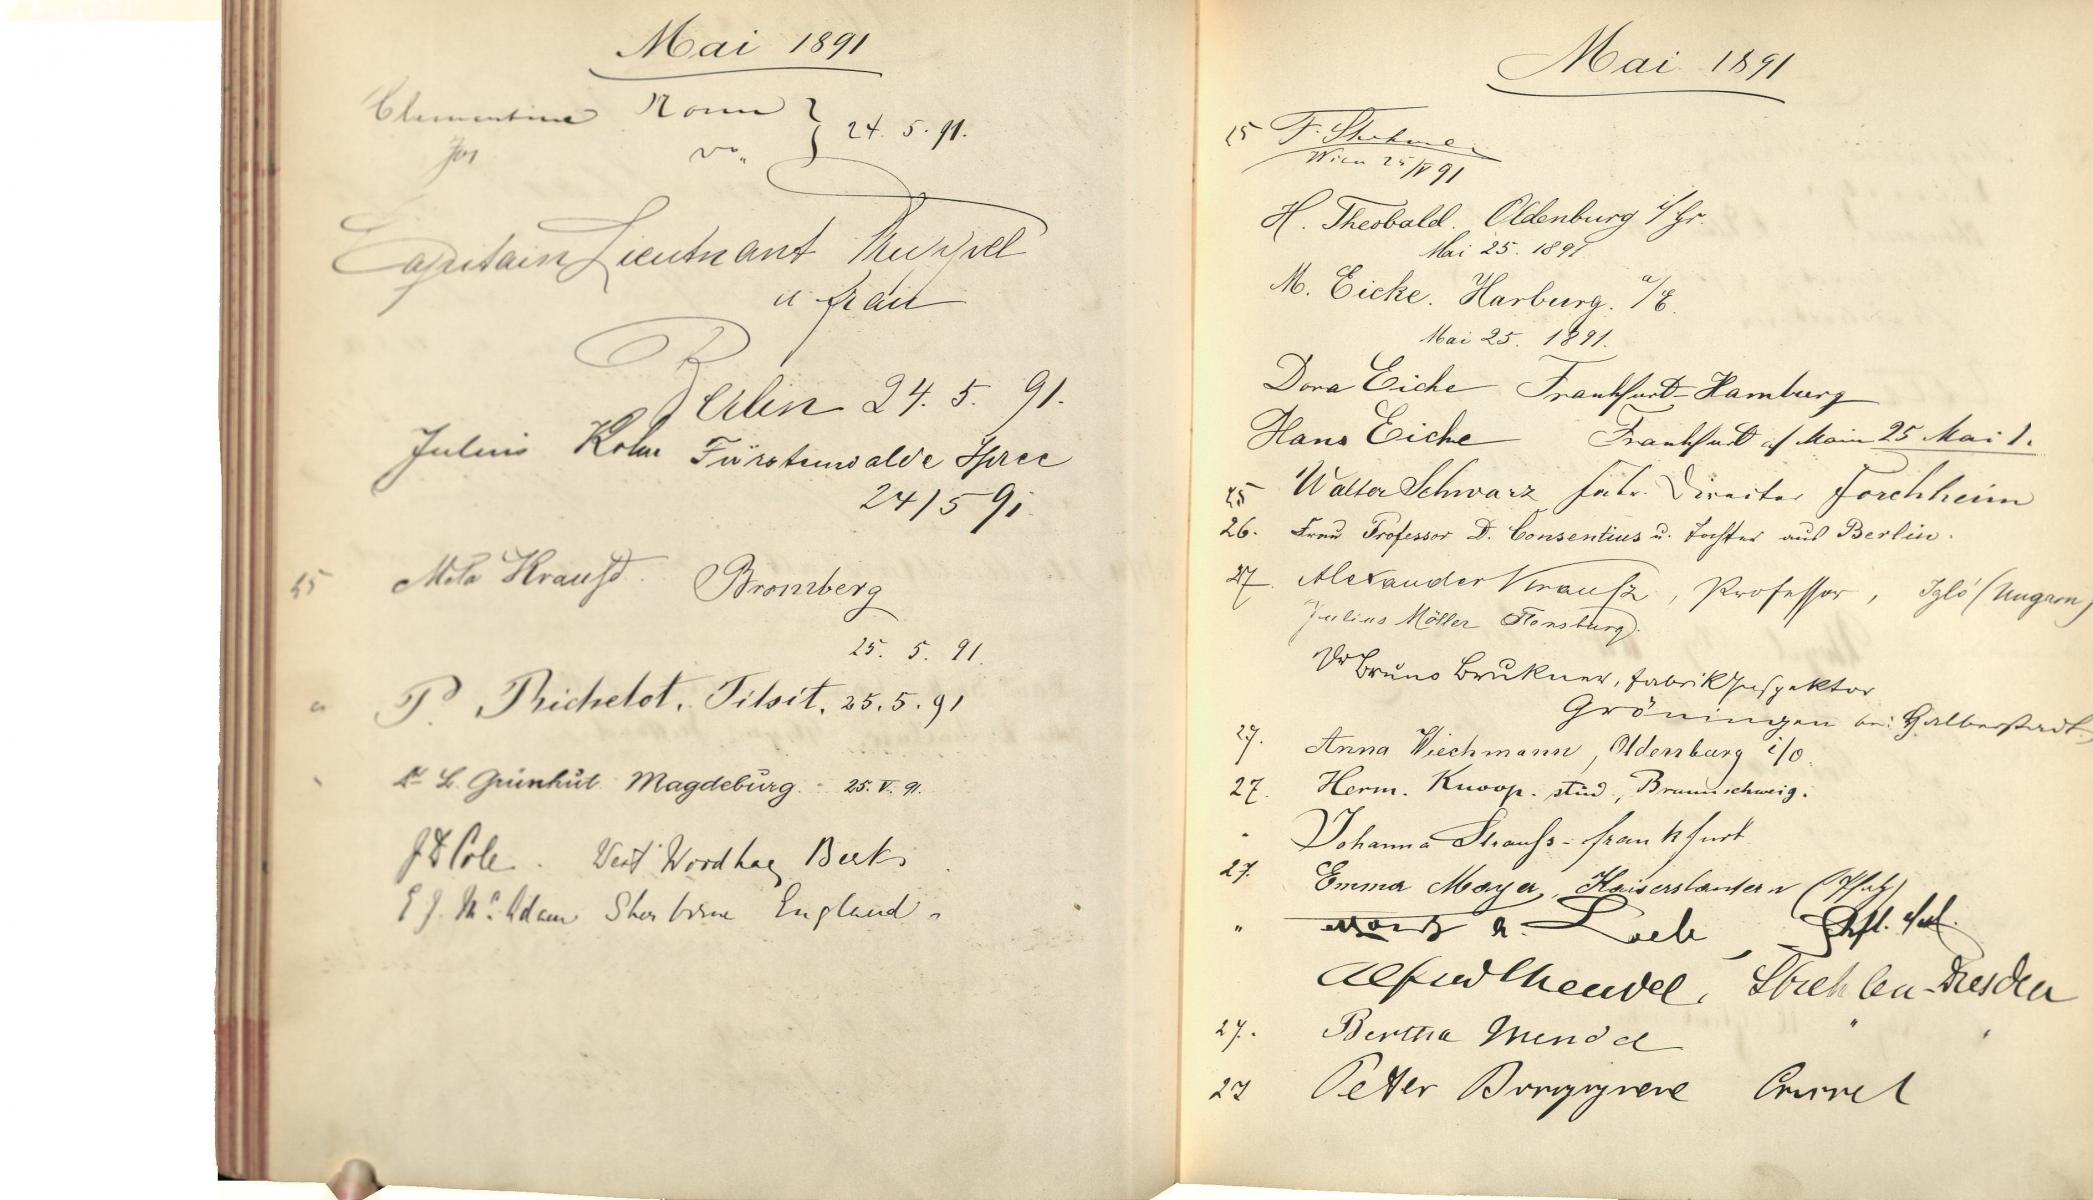 Mai 1891
Clementine
24. 5. 91.
Capitain Lieutnant
u frau
Berlin 24. 5. 91.
Julius Kohn Fürstenwalde Spree
24/5 91
25 Meta Krauße Bromberg
25. 5. 91.
" P. Richelot. Tilsit. 25. 5. 91
Dr L. Grünhut Magdeburg. - 25. V. 91.
Cole. West Berks
E J. Mc Adam Sherborne England.
Mai 1891
25 F.
Wien 25/V 91
H. Theobald. Oldenburg i/Gr.
Mai 25. 1891
M. Eicke. Harburg. a/E.
Mai 25. 1891.
Dora Eiche Frankfurt-Hamburg
Hans Eiche Frankfurt a/Main 25 Mai 1.
25 Walter Schwarz Director Forchheim
26. Frau Professor D. Consentius u. Tochter aus Berlin.
27. Alexander Krausz, Professor, Igló (Ungarn)
Julius Möller Flensburg.
Dr Bruno Brukner, Fabrik Inspektor
Gröningen bei Halberstadt
27. Anna Wiechmann, Oldenburg i/O.
27. Herm. Knoop. stud., Braunschweig.
" Johanna Strauss - Frankfurt
27. Emma Mayer, Kaiserslautern (Pfalz)
" Loeb,
Alfred Mendel, Strehlen-Dresden
27. Bertha Mendel " "
27 Peter